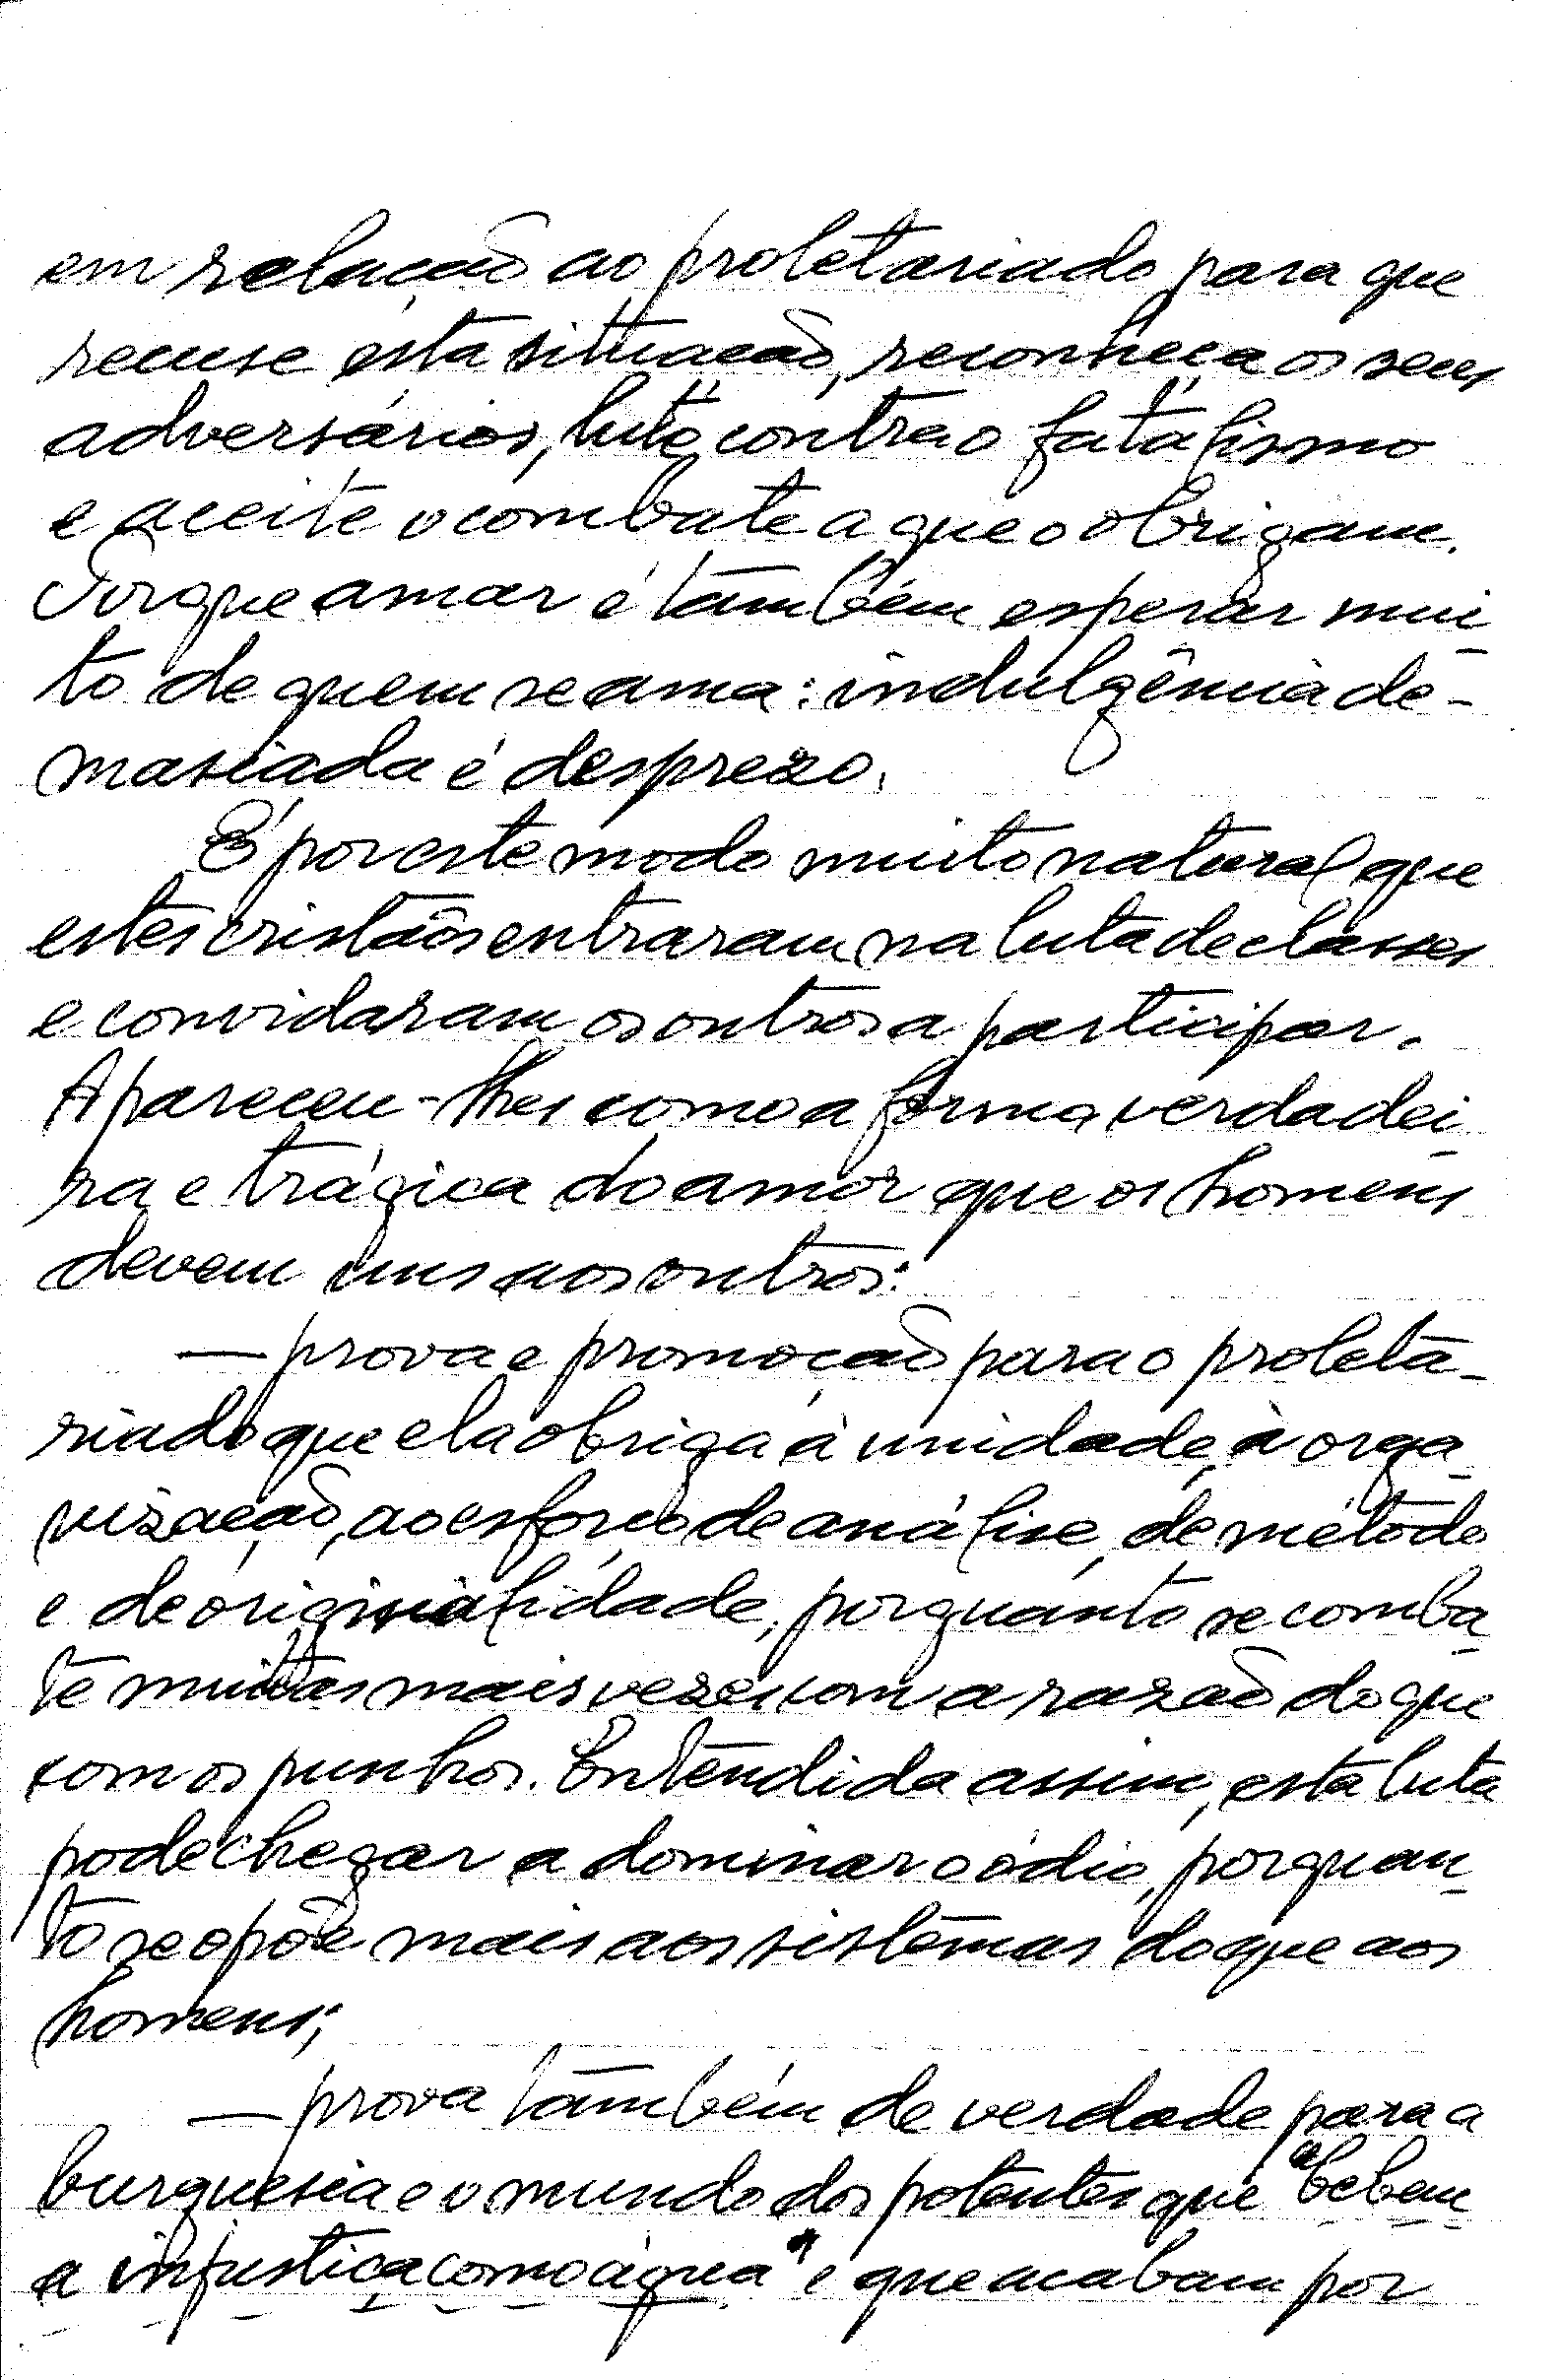 em relação ao proletariado para que
recuse esta situação, reconheça os seus
adversários, lute contra o fatalismo
e aceite o combate a que o obrigam.
Porque amar é também esperar mui-
to de quem se ama: indulgência de-
masiada é desprezo.
É por este modo muito natural que
estes cristãos entraram na luta de classes
e convidaram os outros a participar.
Apareceu-lhes como a forma verdadei-
ra e trágica do amor que os homens
devem uns aos outros:
— prova e promoção para o proleta-
riado que ela obriga à unidade, à orga-
nização, ao esforço de análise, de método
e de originalidade, porquanto se comba-
te muitas mais vezes com a razão do que
com os punhos. Entendida assim, esta luta
pode chegar a dominar o ódio, porquan-
to se opõe mais aos sistemas do que aos
homens;
— prova também de verdade para a
burguesia e o mundo dos potentes que "bebem
a injustiça como água" e que acabam por